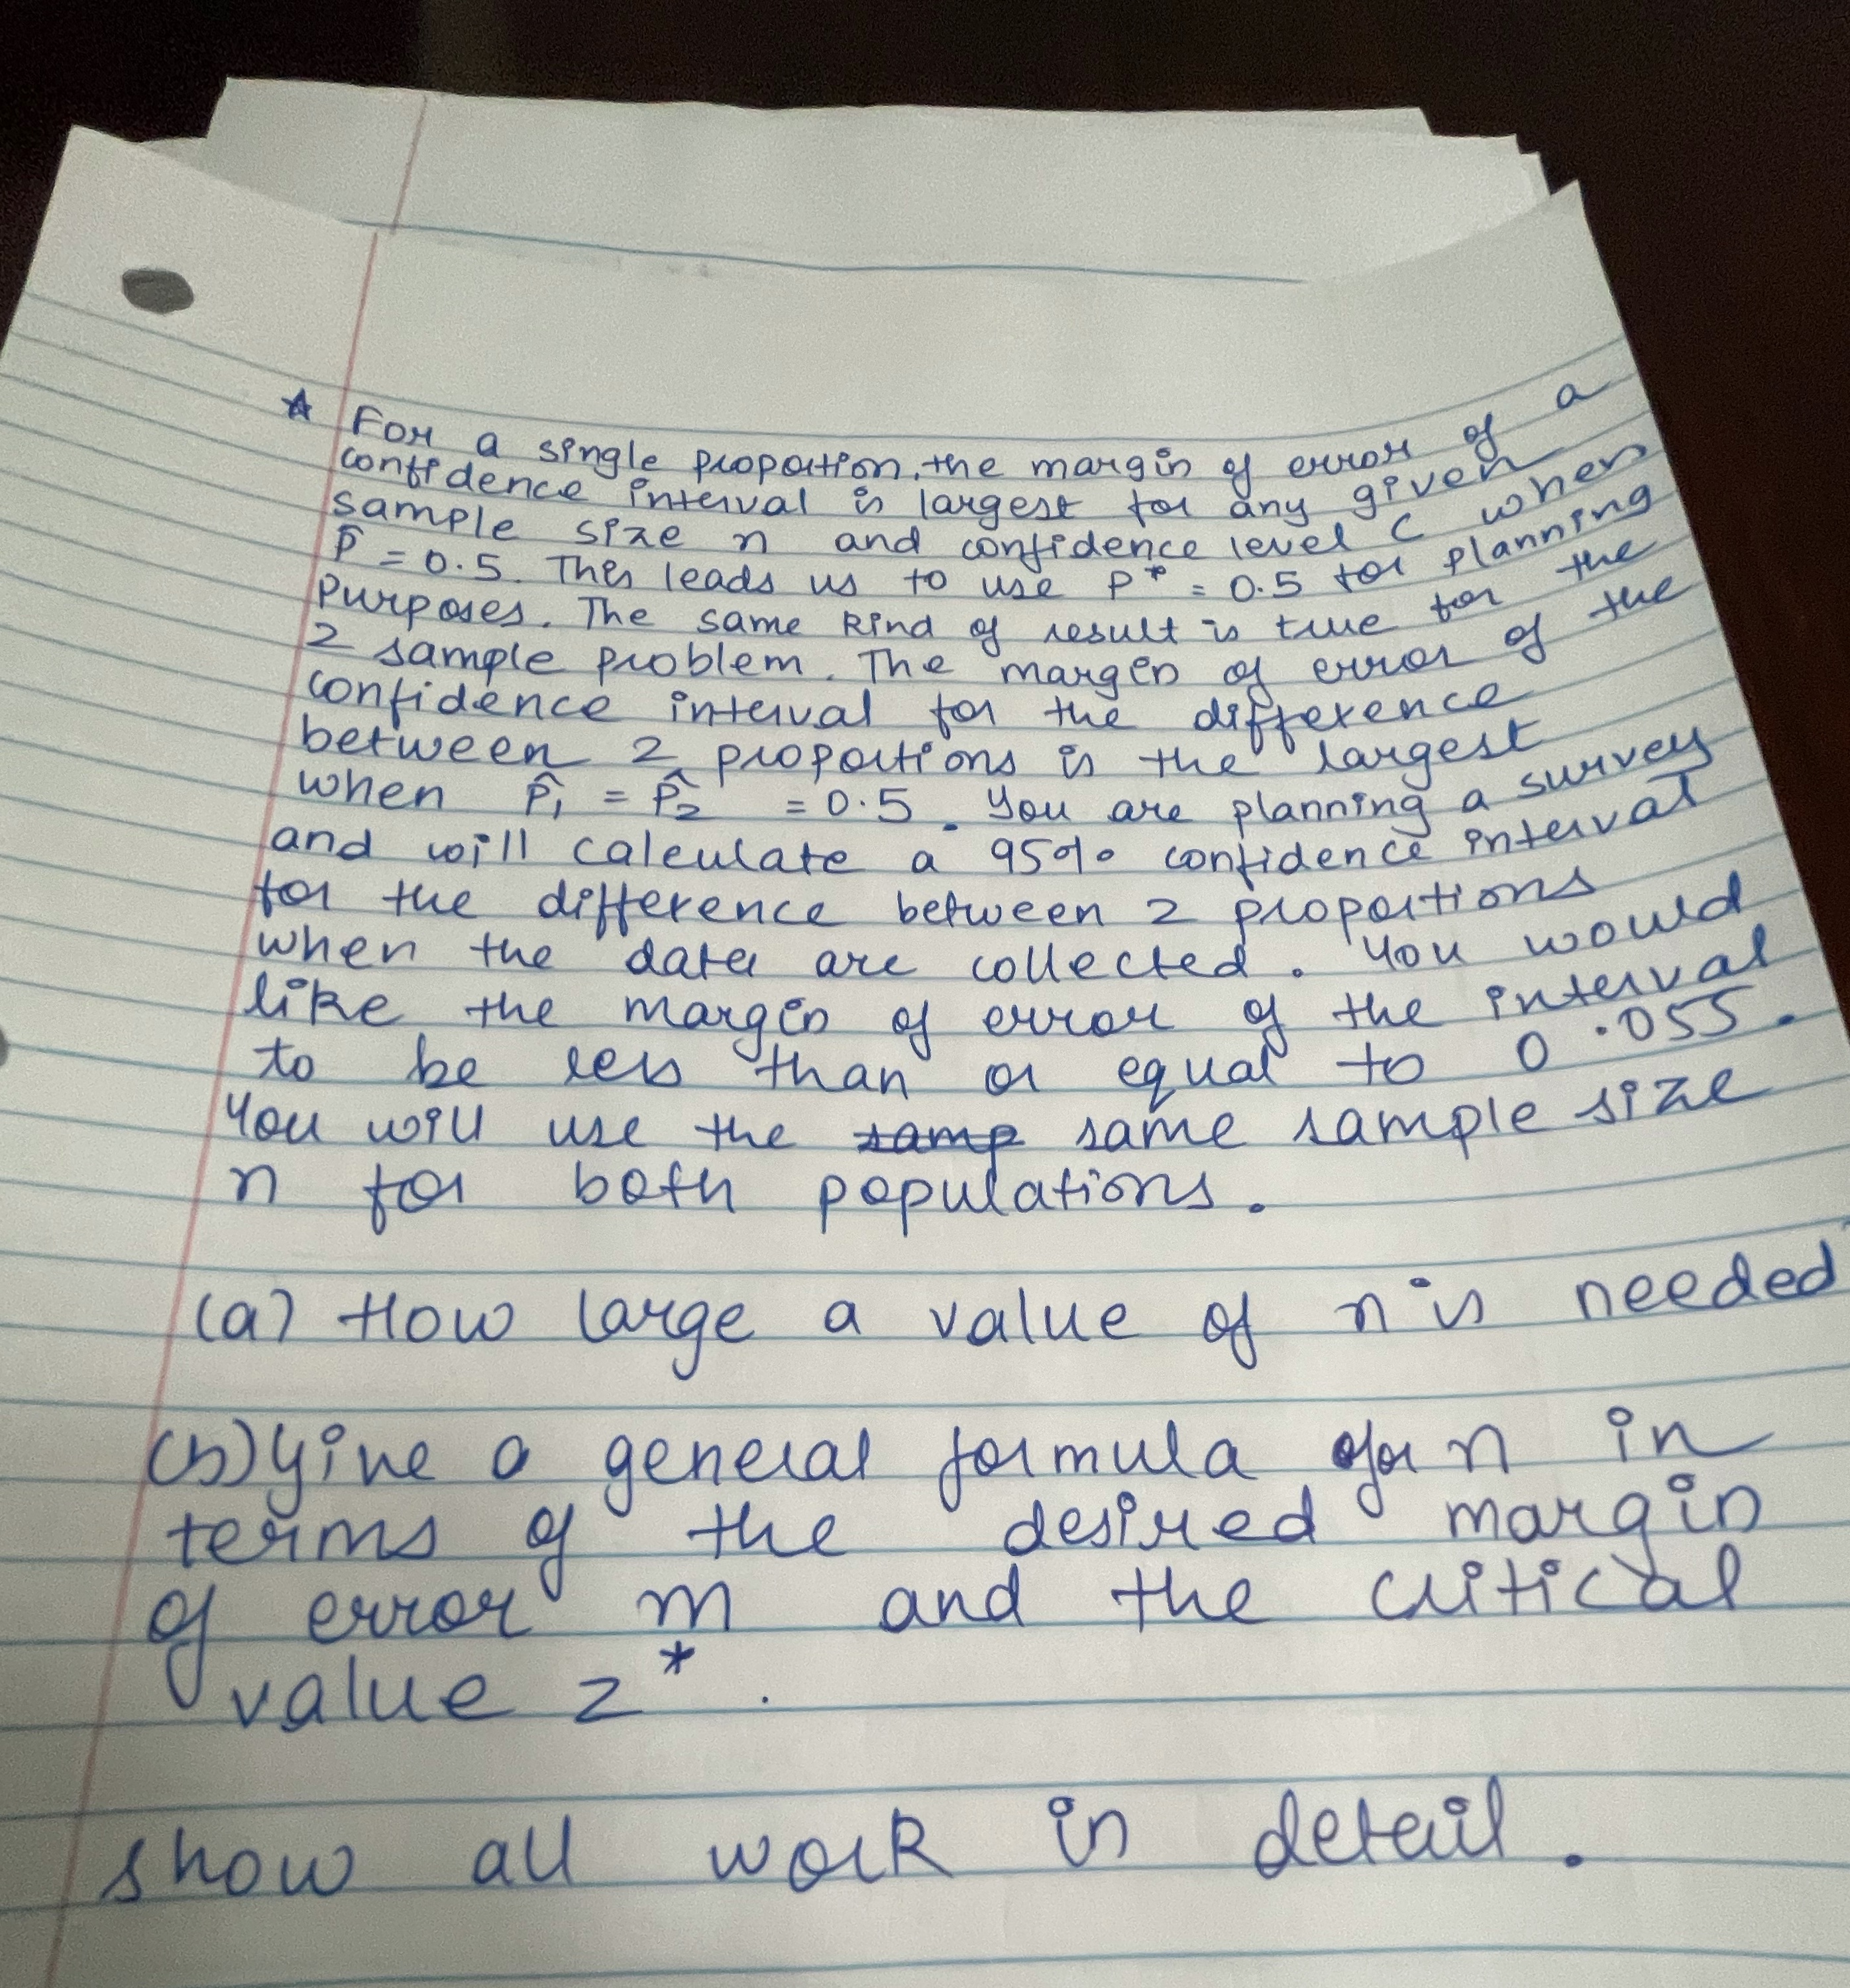 ☆ For a single proportion, the margin of error of a
confidence interval is largest for any given
sample size n and confidence level C when
p̂ = 0.5. This leads us to use P* = 0.5 for planning
purposes. The same kind of result is true for the
2 sample problem. The margin of error of the
confidence interval for the difference
between 2 proportions is the largest
when p̂₁ = p̂₂ = 0.5. You are planning a survey
and will calculate a 95% confidence interval
for the difference between 2 proportions
when the data are collected. You would
like the margin of error of the interval
to be less than or equal to 0.055.
You will use the samp same sample size
n for both populations.
(a) How large a value of n is needed
(b) Give a general formula for n in
terms of the desired margin
of error m and the critical
value z*.
show all work in detail.